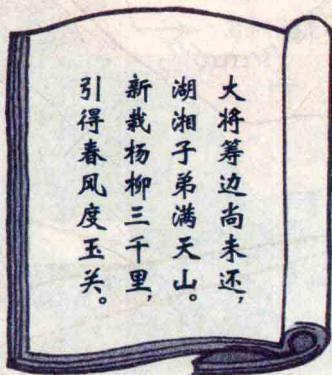 大将筹边尚未还，
湖湘子弟满天山。
新栽杨柳三千里，
引得春风度玉关。